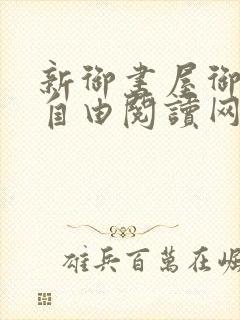 新御書屋御
自由閱讀网
雄兵百萬在崛